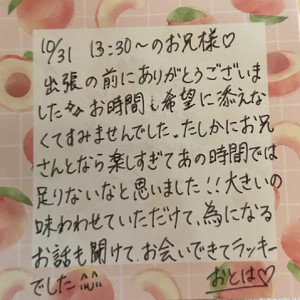 10/31 13:30〜のお兄様♡
出張の前にありがとうございま
した お時間も希望に添えな
くてすみませんでした。たしかにお兄
さんとなら楽しすぎてあの時間では
足りないなと思いました!!大きいの
味わわせていただけて、為になる
お話も聞けて、お会いできてラッキー
でした^^
おとは♡